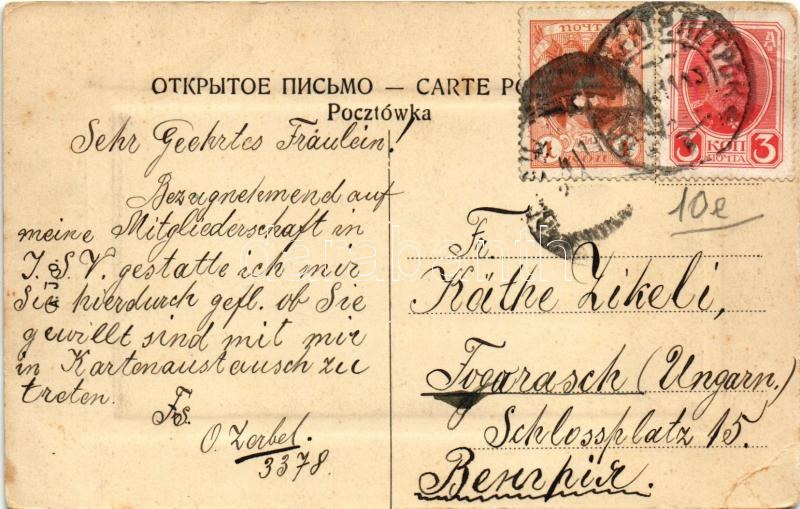 ОТКРЫТОЕ ПИСЬМО — CARTE PO
Pocztówka
ПОЧТА
1 1
3 КОП 3
ПОЧТА
10e
Sehr Geehrtes Fräulein!
Bezugnehmend auf
meine Mitgliederschaft in
I.S.V. gestatte ich mir
Sie hierdurch gefl. ob Sie
gewillt sind mit mir
in Kartenaustausch zu
treten.
O. Zerbel.
3378.
Fr.
Käthe Zikeli,
Fogarasch (Ungarn.)
Schlossplatz 15.
Венгрія.
darabanth